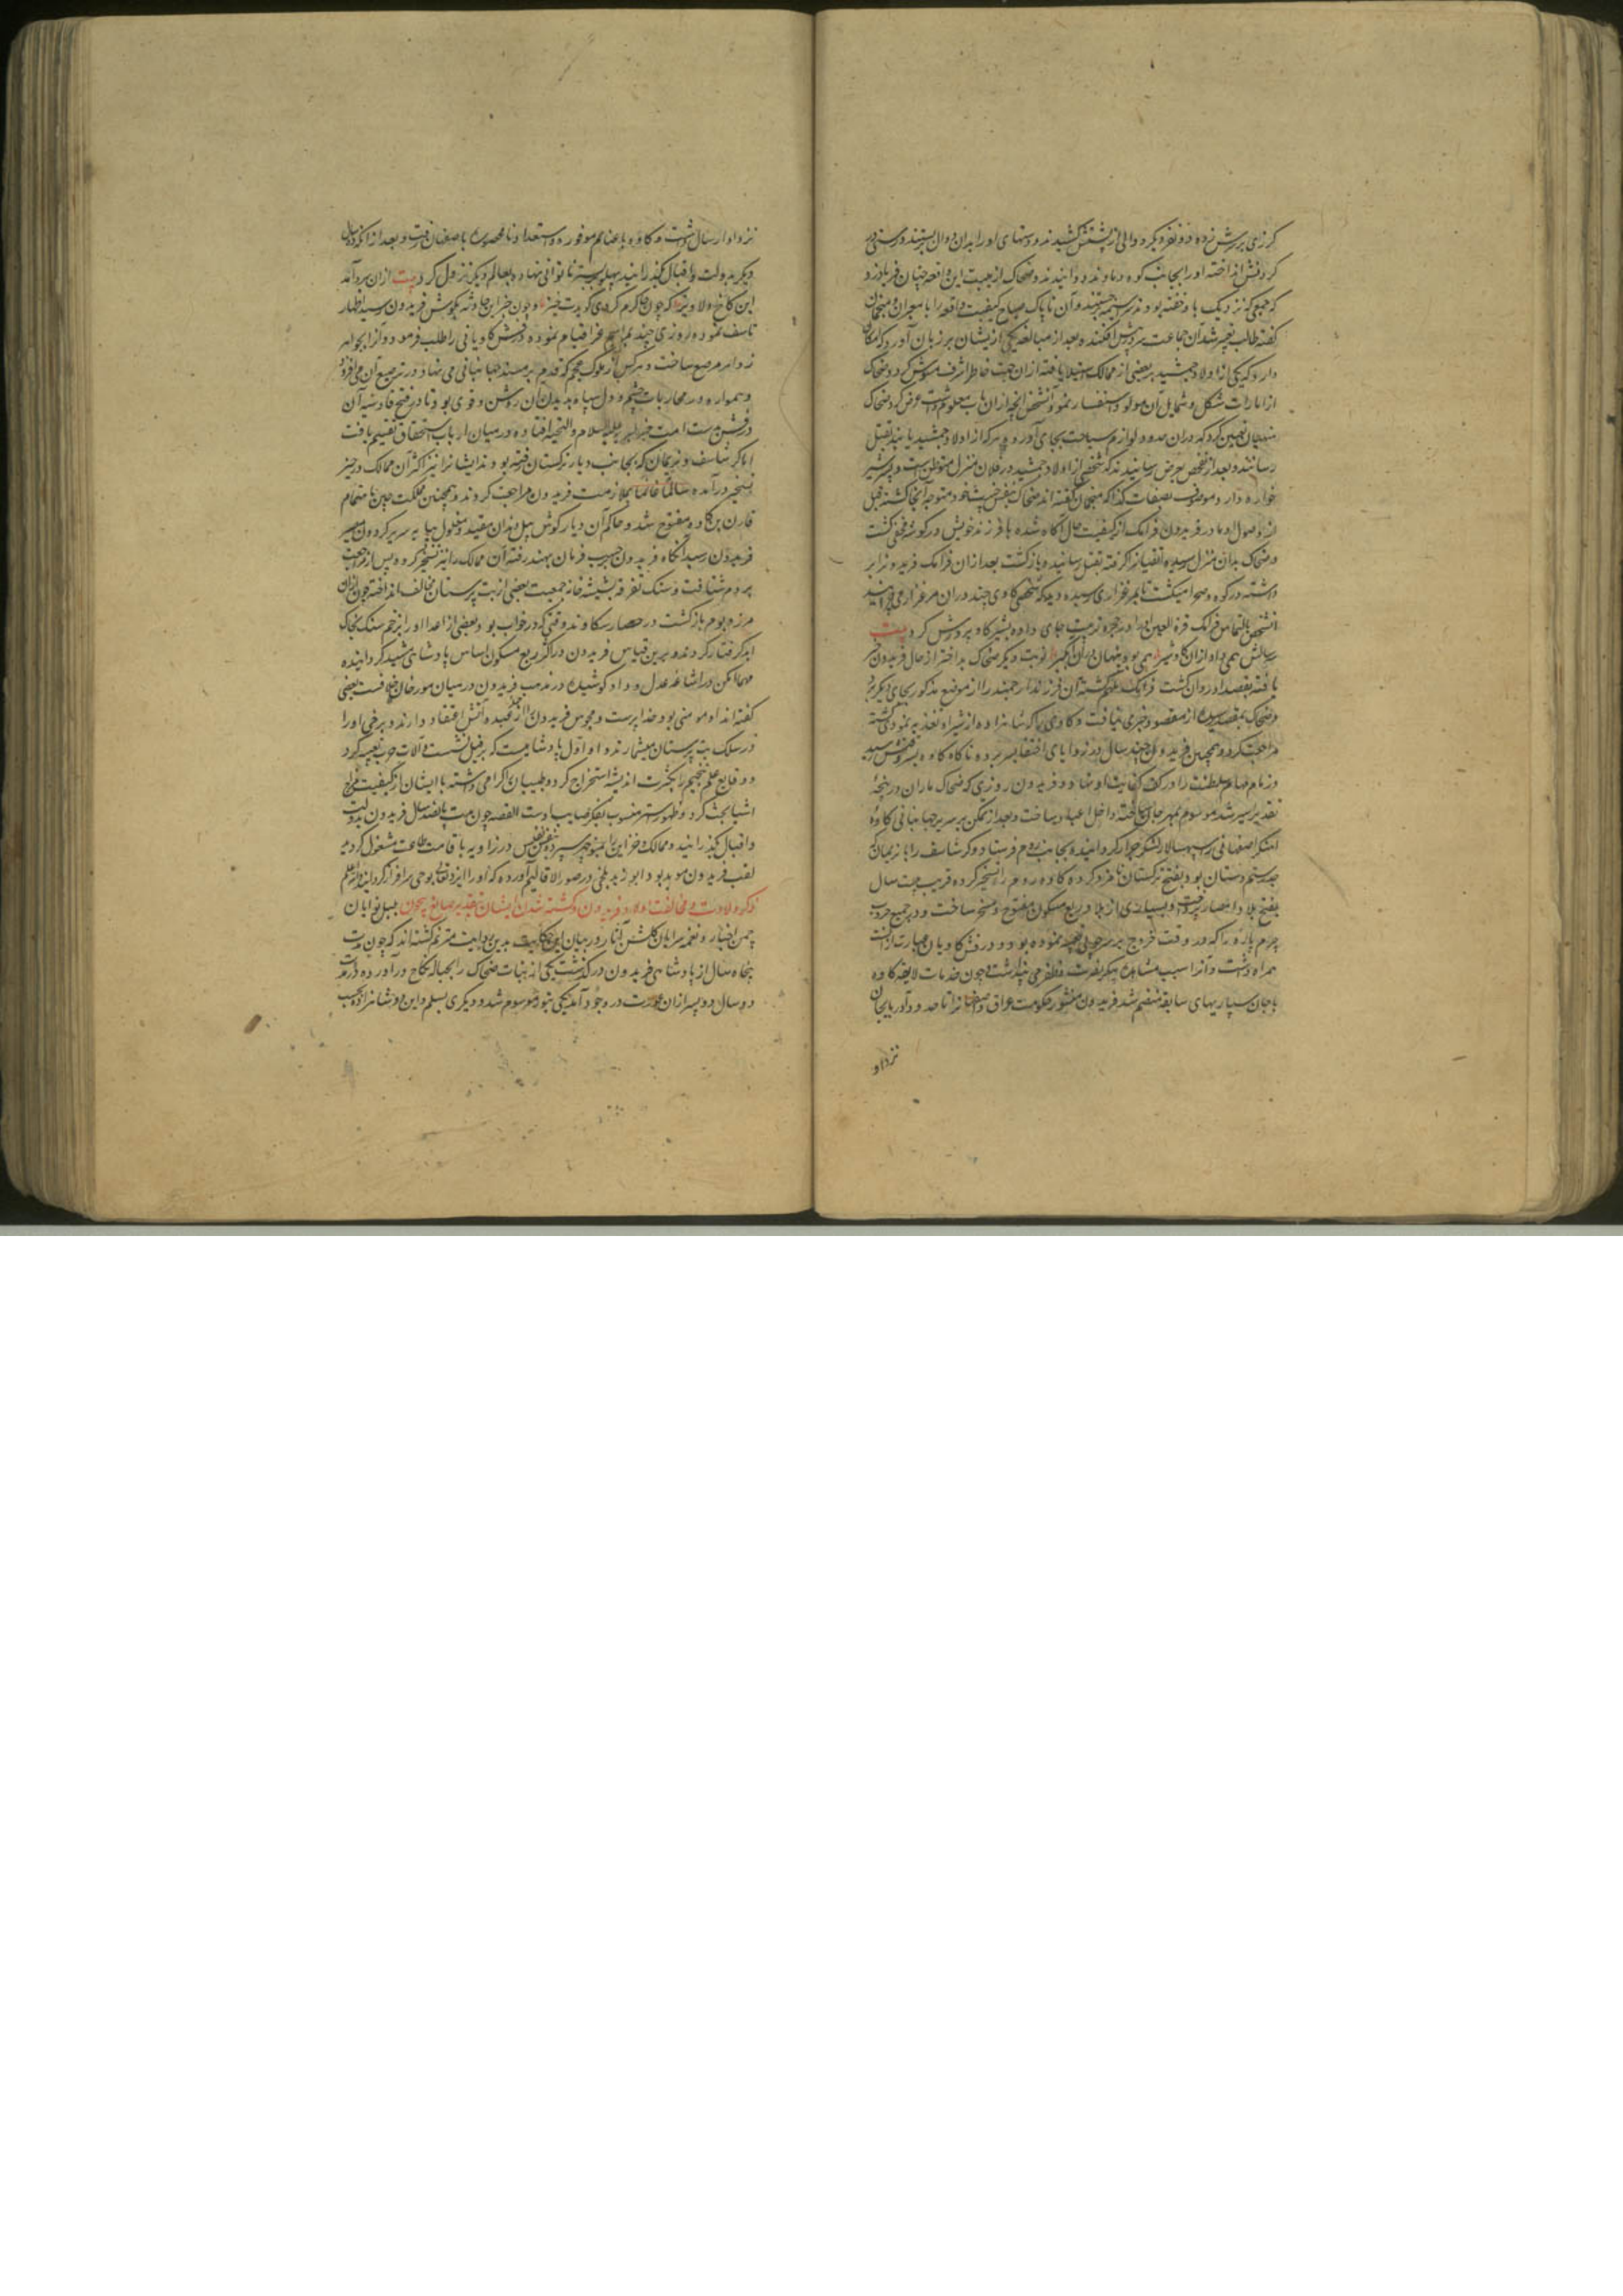 کرزی بر سرش زده دو نفر دیکر دوالی از پشتش کشیدند و دستهای او را بدان دوال بستند و رسنی در
کردنش انداخته او را بجانب کوه دماوند دوانیدند و ضحاک از هیبت این واقعه چنان فریاد زد
که جمعی که نزدیک با و خفته بودند سراسیمه جستند و آن ناپاک صباح کیفیت واقعه را با معبران و منجمان
کفته طالب تعبیر شد آن جماعت سر در پیش افکندند و بعد از مبالغه یکی از ایشان بر زبان آورد که امکان
دارد که یکی از اولاد جمشید بر بعضی از ممالک استیلا یافته ازان جهت خاطر اشرف مشوش کردد و ضحاک
از امارات شکل و شمایل آن مولود استفسار نمود آن شخص آنچه ازان باب معلوم داشت عرض کرد ضحاک
منهیان تعیین کرد که دران حدود لوازم سیاحت بجای آورده هر که از اولاد جمشید یابند بقتل
رسانند و بعد از تفحص بعرض رسانیدند که شخصی از اولاد جمشید در فلان منزل متوطن است و پسر شیر
خواره دارد موصوف بصفات کذا که منجمان کفته اند ضحاک بنفس خبیث خود متوجه آنجا کشته قبل
از وصول او مادر فریدون فرانک از کیفیت حال آکاه شده با فرزند خویش در کوشه مخفی کشت
و ضحاک بدان منزل رسیده آتقیانرا کرفته بقتل رسانید و بازکشت بعد ازان فرانک فریدونرا بر
داشته در کوه و صحرا میکشت تا بمرغزاری رسیده دید که شخصی کاوی چند دران مرغزار میچراند
آنشخص بالتماس فرانک قرة العین او را در حجره تربیت جای داده بشیر کاو پرورش کرد بیت
سه سالش همی داد ازان کاو شیر همی بود پنهان دران آبکیر نوبت دیکر ضحاک بد اختر از حال فریدون خبر
یافته بقصد او روان کشت فرانک ملهم کشته آن فرزند ارجمند را از موضع مذکور بجای دیکر برد
و ضحاک بمقصد رسیده از مقصود خبری نیافت و کاوی را که شاهزاده از شیر او تغذیه نمودی کشته
مراجعت کرد و همچنین فریدون چند سال در زوایای اختفا بسر برده ناکاه کاوه بسر وقتش رسید
و زمام مهام سلطنت را در کف کفایت او نهاد و فریدون روزی که ضحاک ماران در پنجه
تقدیر اسیر شد موسوم بمهرجان ساخته داخل اعیاد ساخت و بعد از تمکن بر سریر جهانبانی کاوه
آهنکر اصفهانی را سپهسالار لشکر جرار کردانیده بجانب روم فرستاد و کرشاسف را با نریمان
جد رستم دستان بود بفتح ترکستان نامزد کرد کاوه روم را تسخیر کرده قریب بیست سال
بفتح بلاد و امصار پرداخت و بسیاری از بلاد ربع مسکون مفتوح و مسخر ساخت و در جمیع حروب
چرم پاره را که در وقت خروج بر سر چوبی تعبیه نموده بود و درفش کاویان عبارت ازانست
همراه داشت و آنرا سبب مشاهده پیکر نصرت و ظفر می پنداشت و چون خدمات لایقه کاوه
با جان سپاریهای سابقه منضم شد فریدون منشور حکومت عراق و اصفهانرا تا حدود آذربایجان
نزد او
نزد او ارسال داشت و کاوه با غنایم موفوره و استعداد نامحصور باصفهان رفت و بعد از آنکه ده سال
دیکر بدولت و اقبال کذرانید پهلو بر بستر ناتوانی نهاده بعالم دیکر نزول کرد بیت ازان سرد آمد
این کاخ دلاویز که چون جا کرم کردی کویدت خیز و چون خبر این حادثه بکوش فریدون رسید اظهار
تاسف نموده روزی چند بمراسم عزا قیام نموده درفش کاویانی را طلب فرمود و آنرا بجواهر
زواهر مرصع ساخت و هر کس از ملوک عجم که قدم بر مسند جهانبانی می نهاد در ترصیع آن می افزود
و همواره در محاربات چشم و دل سپاه بدیدن آن روشن و قوی بود تا در فتح قادسیه آن
درفش بدست امت خیر البریه علیه السلام و التحیه افتاده در میان ارباب استحقاق تقسیم یافت
اما کرشاسف و نریمان که بجانب دیار ترکستان رفته بودند ایشانرا نیز اکثر آن ممالک در حیز
تسخیر درآمده سالماً غانماً بملازمت فریدون مراجعت کردند و همچنین مملکت چین باهتمام
قارن بن کاوه مفتوح شد و حاکم آن دیار کوش پیل دندان مقید و مغلول بپایه سریر کردون مسیر
فریدون رسید آنکاه فریدون حسب فرمان بهند رفته آن ممالک را نیز تسخیر کرد و پس از مراجعت
بروم شتافت و سنک تفرقه بشیشه خانه جمعیت بعضی از بت پرستان مخالف انداخته چون ازان
مرز و بوم بازکشت در حصار سکاوند وقتی که در خواب بود بعضی از اعدا او را بزخم سنک نجاک
ابد کرفتار کردند و برین قیاس فریدون در اکثر ربع مسکون اساس پادشاهی مشید کردانیده
مهما امکن در اشاعه عدل و داد کوشیده در مذهب فریدون در میان مورخان خلافست بعضی
کفته اند او مومنی بود خدا پرست و مجوس فریدون را از عبده آتش اعتقاد دارند و برخی او را
در سلک بت پرستان میشمارند و او اول پادشاهیست که بر فیل نشست و آلات حرب تعبیه کرد
و وقایع علم نجوم را بکثرت اندیشه استخراج کرد و طبیبان را کرامی داشته با ایشان از کیفیت مزاج
اشیا بحث کرد و ظهور استر منسوب بفکر صایب اوست القصه چون مدت پانصد سال فریدون بدولت
و اقبال کذرانید و ممالک و خزاین را بمنوچهر سپرده بنفس نفیس در زاویه باقامت طاعت مشغول کردید
لقب فریدون موبد بود ابو زید بلخی در صور الاقالیم آورده که او را ایزد تعالی بوحی سرافراز کردانید و الله اعلم
ذکر ولادت و مخالفت اولاد فریدون و کشته شدن ایشان بتقدیر صانع بیچون بلبل نوایان
چمن اخبار و نغمه سرایان کلشن آثار در بیان این حکایت بدین روایت مترنم کشته اند که چون مدت
پنجاه سال از پادشاهی فریدون درکذشت یکی از بنات ضحاک را بحباله نکاح درآورده در مدت
دو سال دو پسر ازان عورت در وجود آمد یکی بتور موسوم شد و دیکری بسلم و این دو شاهزاده بحسب